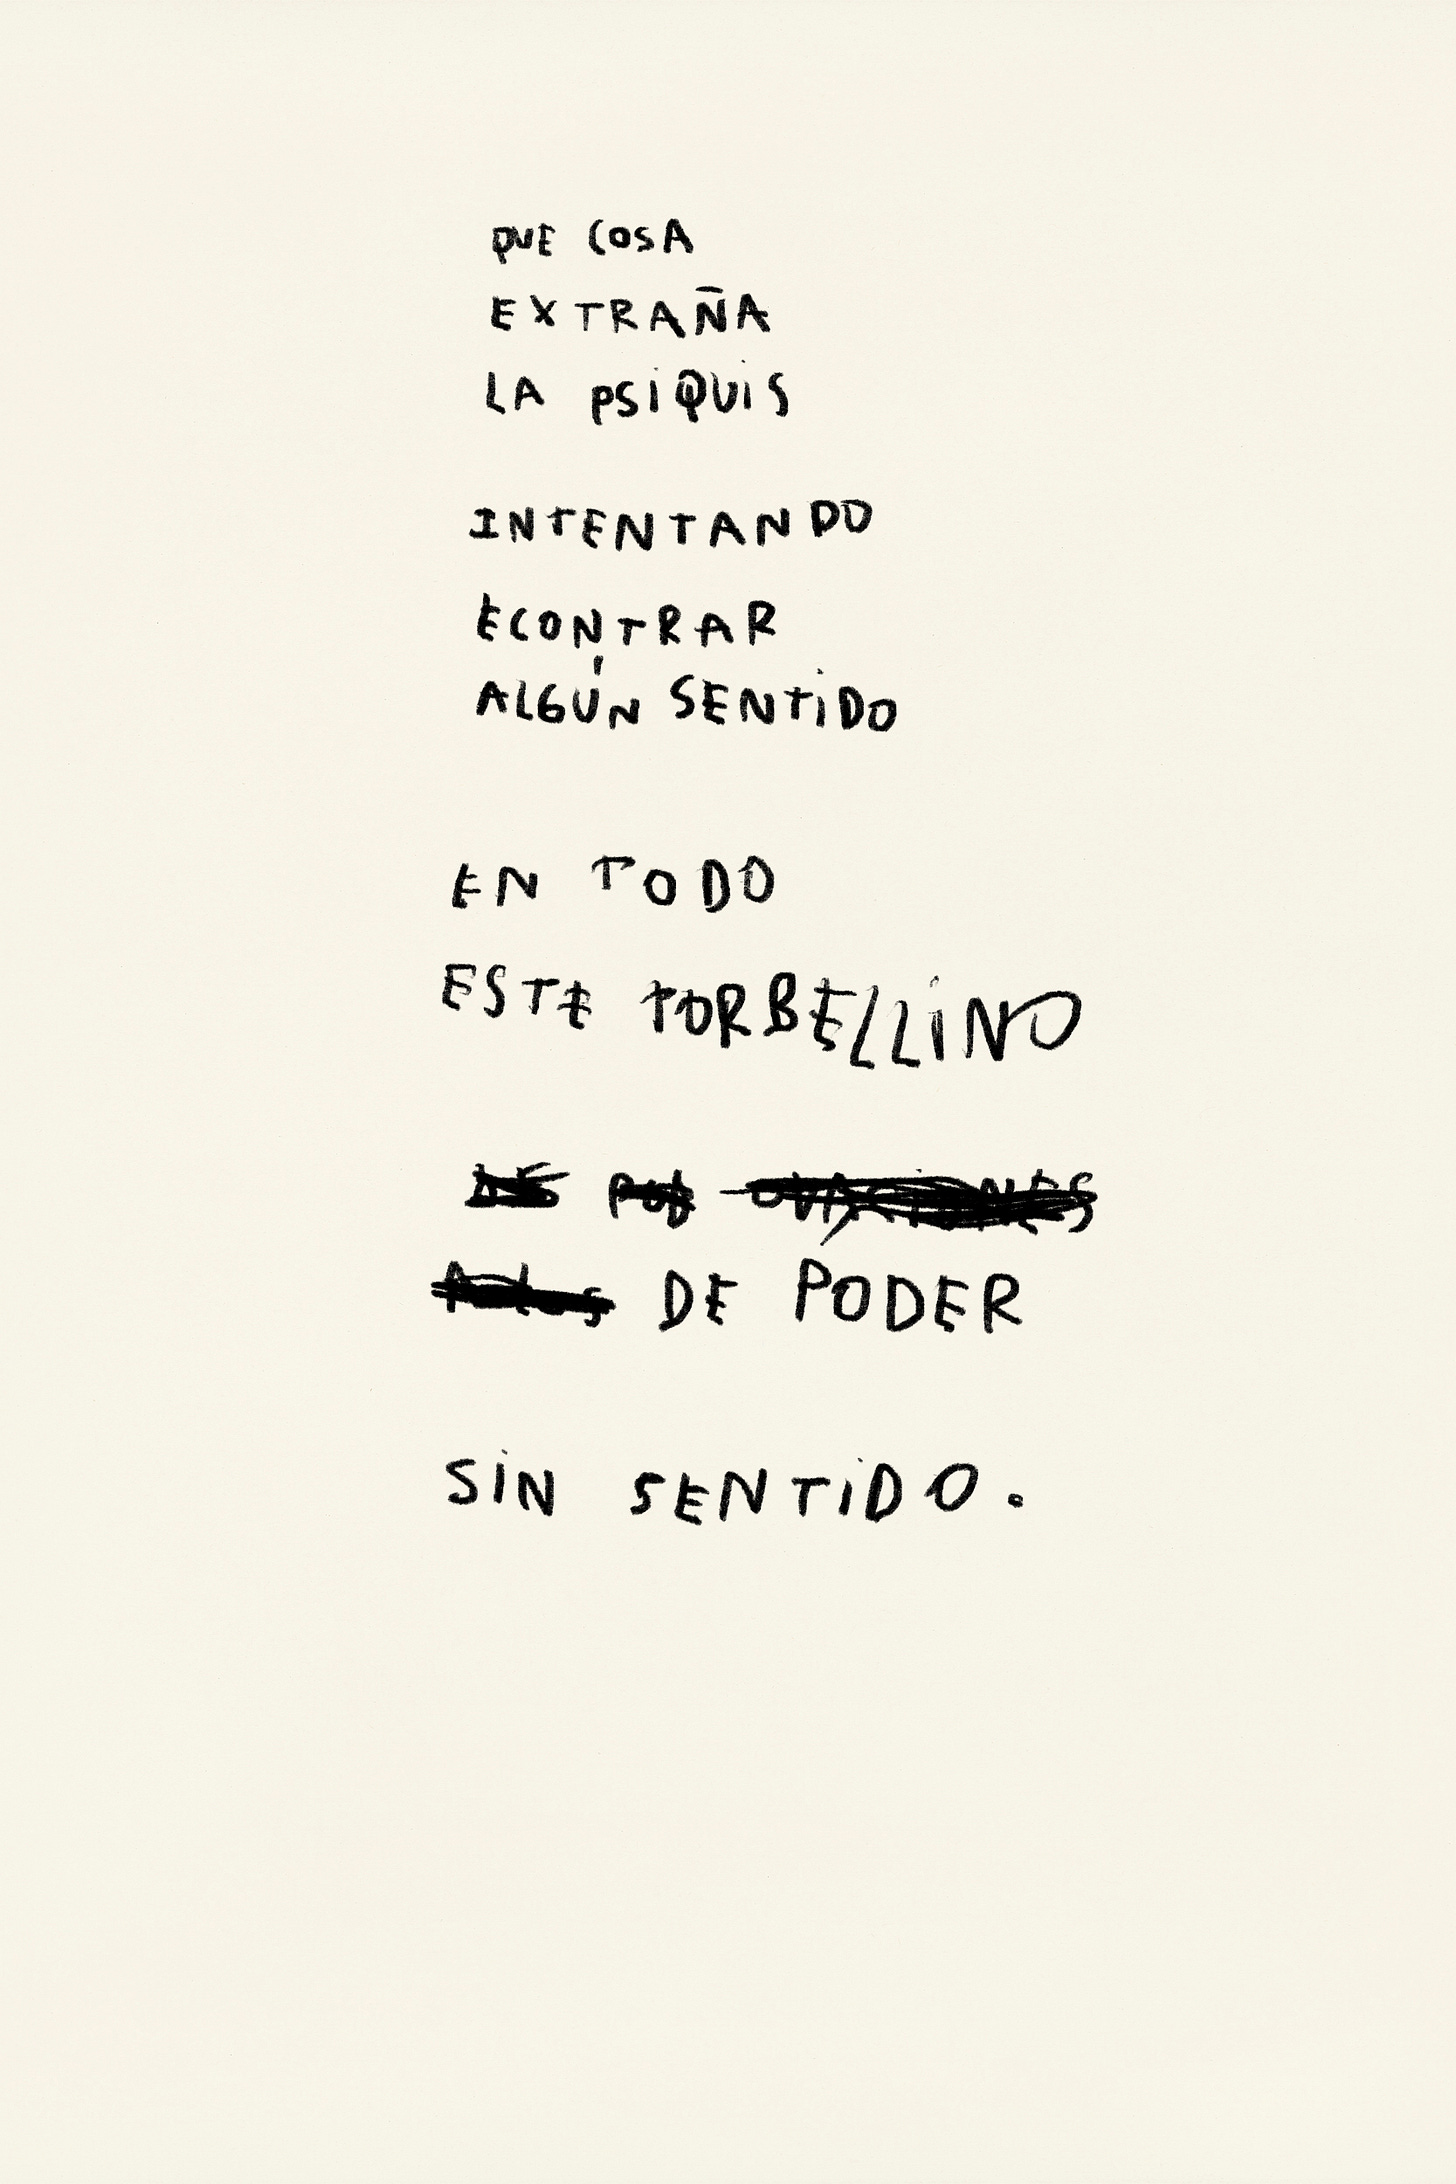 QUE COSA
EXTRAÑA
LA PSIQUIS
INTENTANDO
ECONTRAR
ALGÚN SENTIDO
EN TODO
ESTE TORBELLINO
DE PODER
SIN SENTIDO.